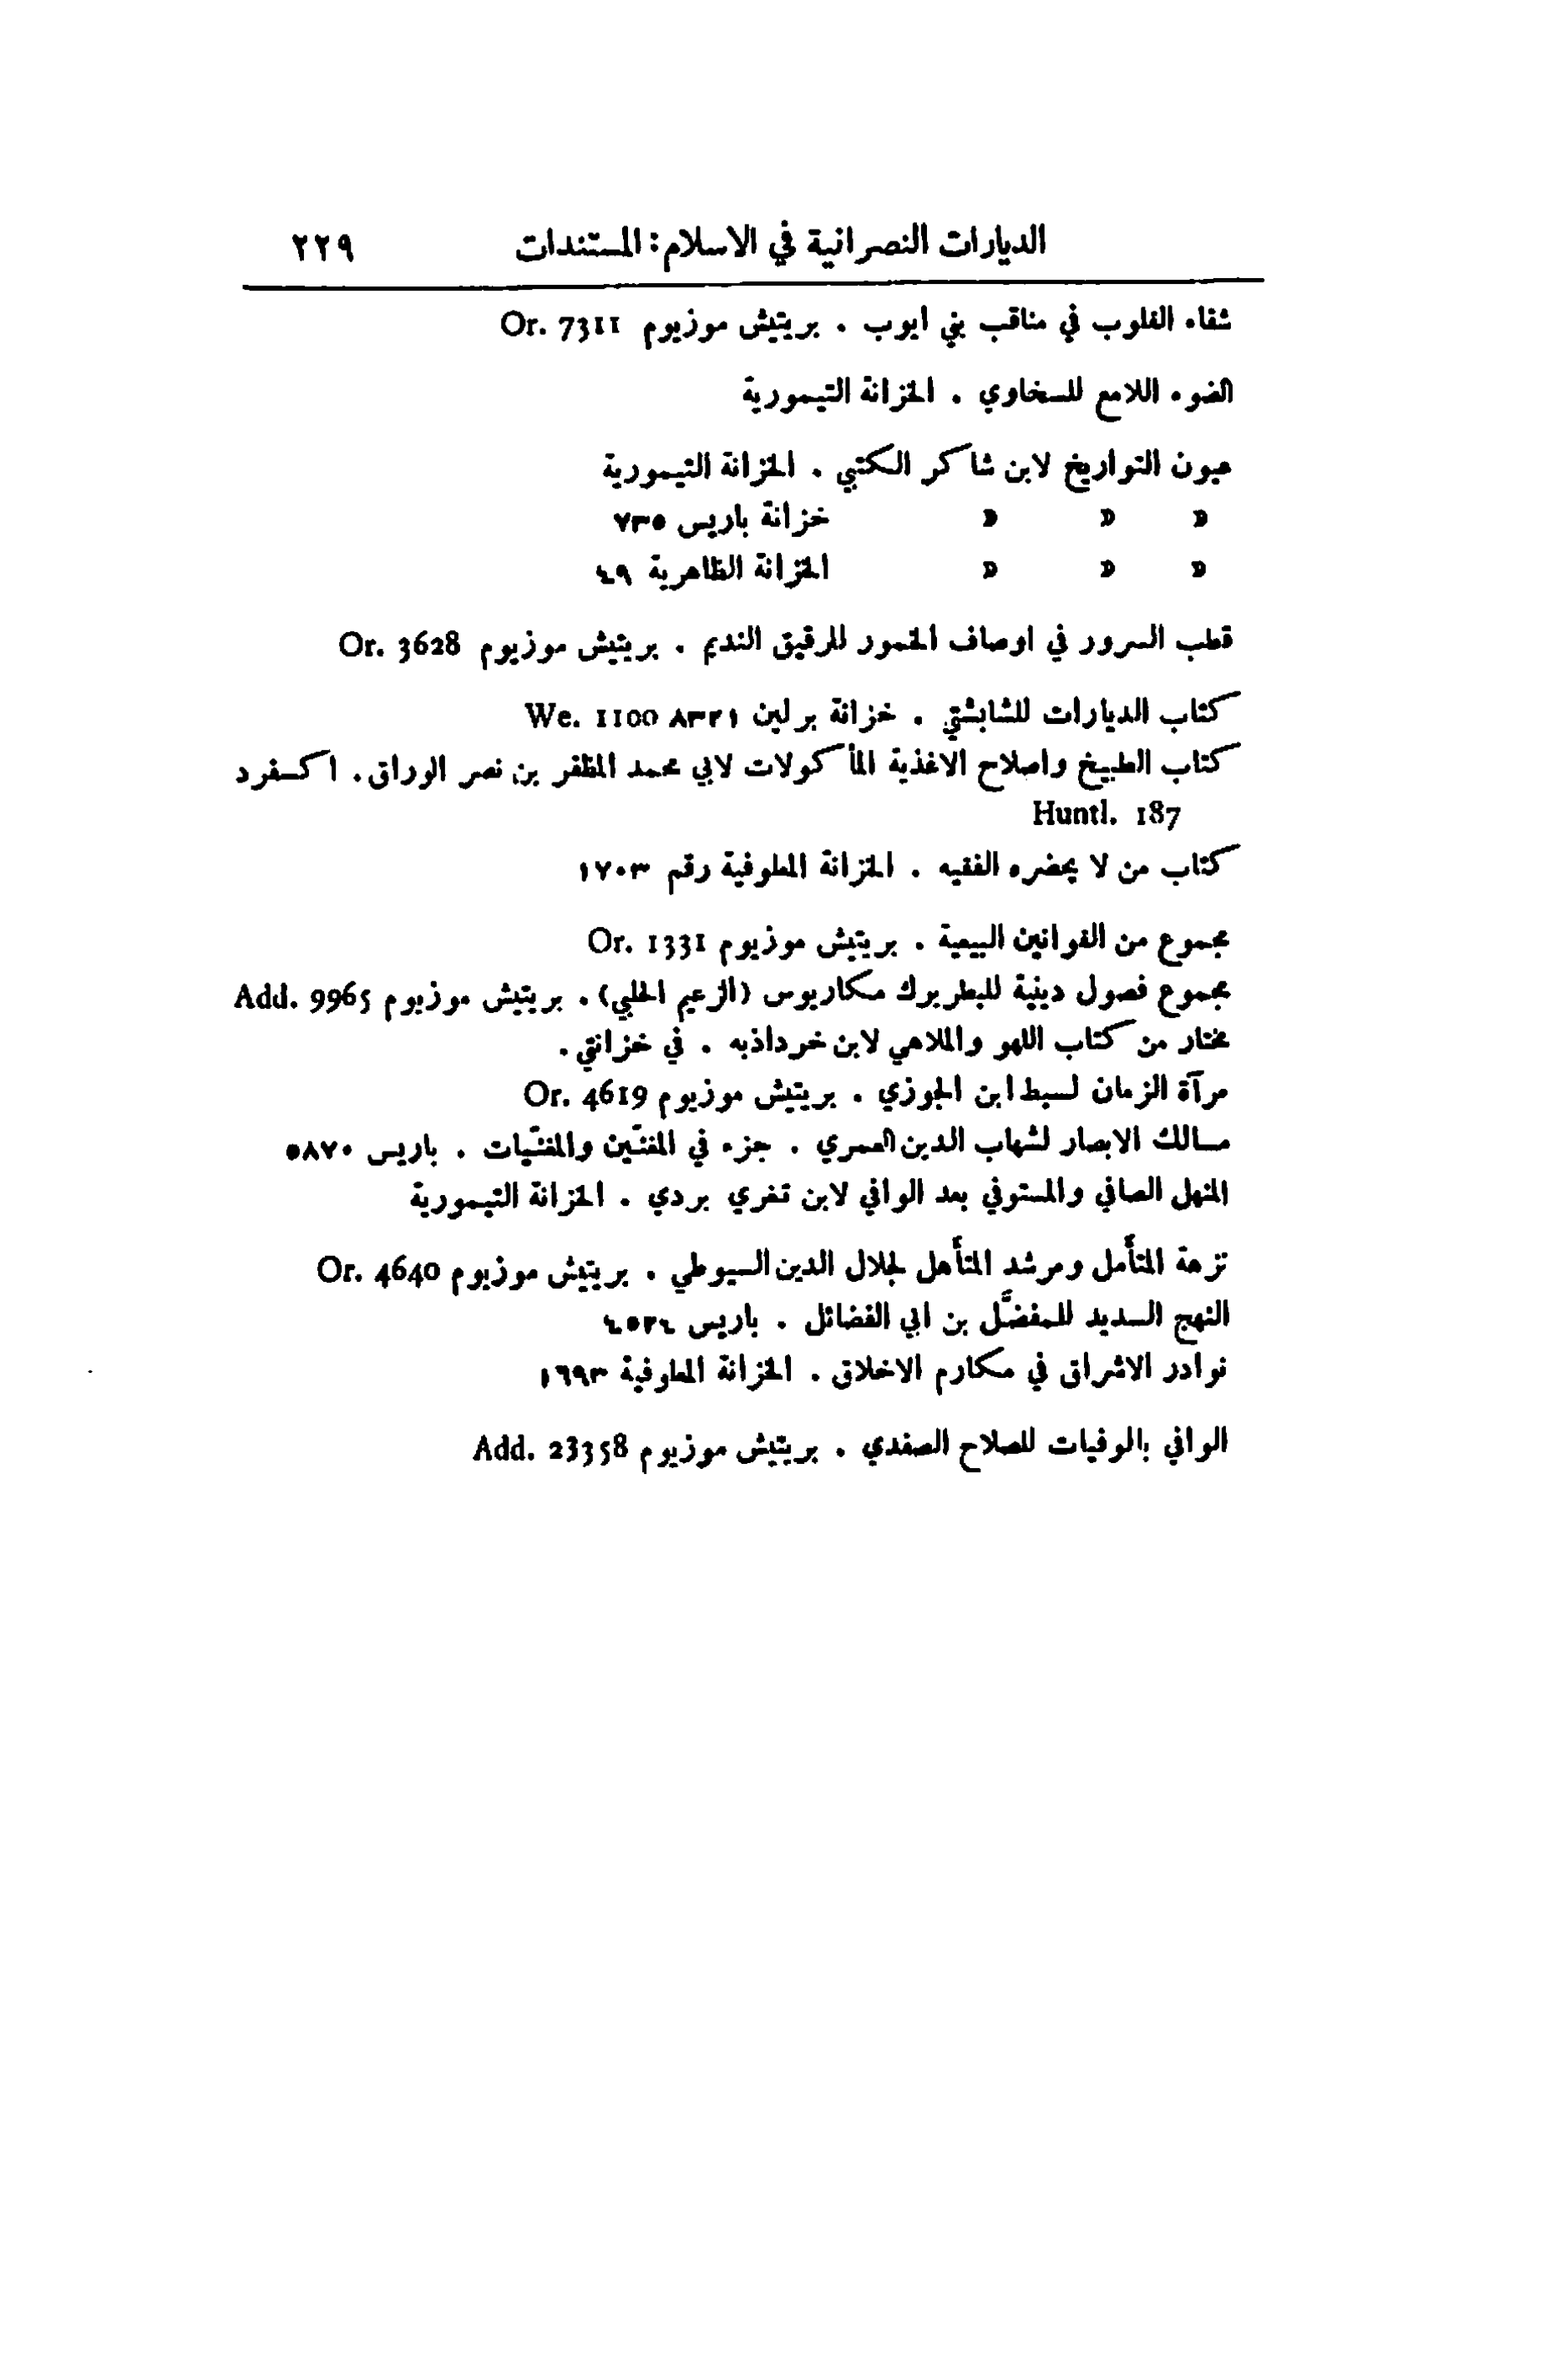 الديارات النصرانية في الاسلام: المستندات ٢٢٩
شفاء القلوب في مناقب بني ايوب . بريتيش موزيوم Or. 7311
الضوء اللامع للسخاوي . الخزانة التيمورية
عيون التواريخ لابن شاكر الكتبي . الخزانة التيمورية
« « « خزانة باريس ٧٣٥
« « « الخزانة الظاهرية ٤٩
قطب السرور في اوصاف الخمور للرقيق النديم . بريتيش موزيوم Or. 3628
كتاب الديارات للشابشتي . خزانة برلين ٨٣٢١ We. 1100
كتاب الطبيخ واصلاح الاغذية المأكولات لابي محمد المظفر بن نصر الوراق . اكسفرد
Huntl. 187
كتاب من لا يحضره الفقيه . الخزانة المطوفية رقم ١٧٠٣
مجموع من القوانين البيعية . بريتيش موزيوم Or. 1331
مجموع فصول دينية للبطريرك مكاريوس (الزعيم الحلبي) . بريتيش موزيوم Add. 9965
مختار من كتاب اللهو والملاهي لابن خرداذبه . في خزانتي .
مرآة الزمان لسبط ابن الجوزي . بريتيش موزيوم Or. 4619
مسالك الابصار لشهاب الدين العمري . جزء في المغنّين والمغنّيات . باريس ٥٨٧٠
المنهل الصافي والمستوفي بعد الوافي لابن تغري بردي . الخزانة التيمورية
نزهة المتأمل ومرشد المتأهل لجلال الدين السيوطي . بريتيش موزيوم Or. 4640
النهج السديد للمفضَّل بن ابي الفضائل . باريس ٤٥٢٤
نوادر الاشراق في مكارم الاخلاق . الخزانة المطوفية ١٦٩٣
الوافي بالوفيات للصلاح الصفدي . بريتيش موزيوم Add. 23358